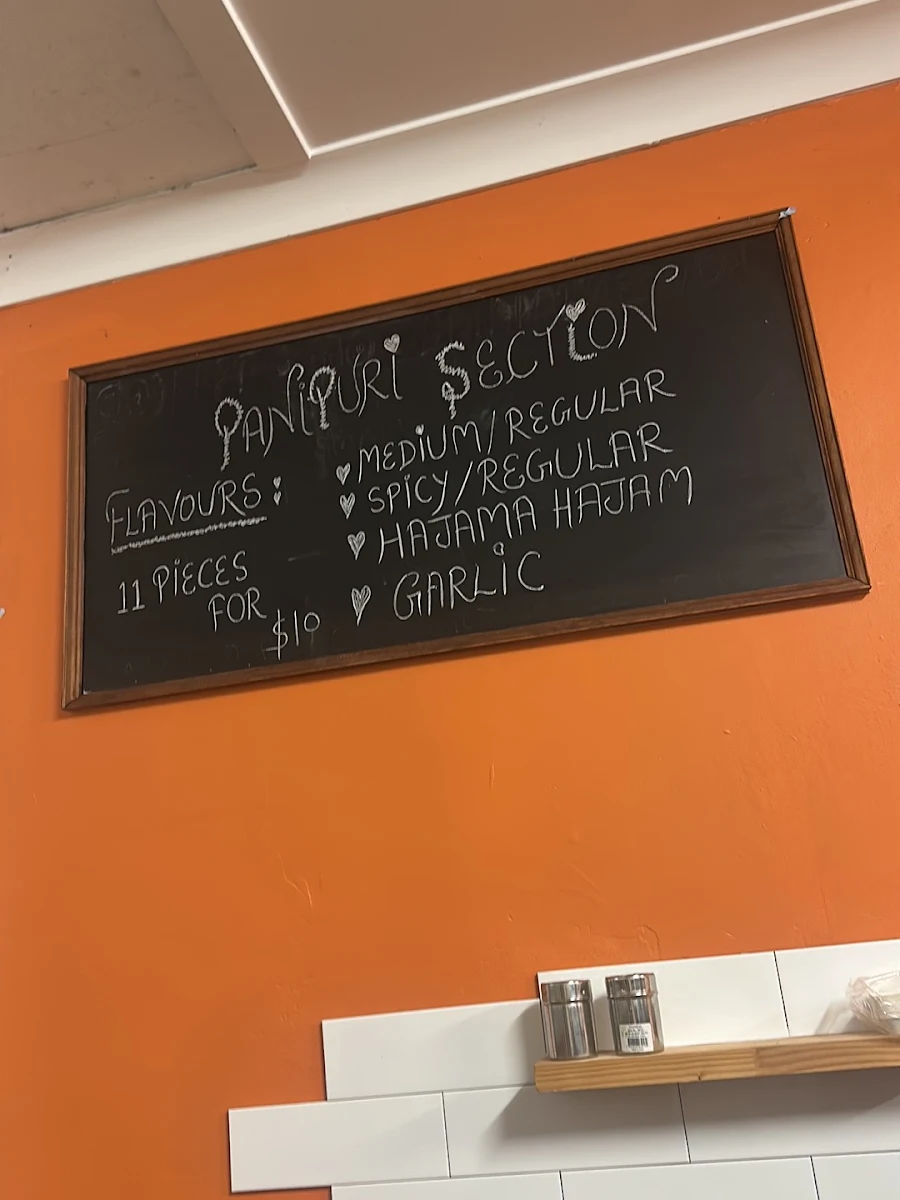 PANIPURI SECTION
FLAVOURS:
MEDIUM/REGULAR
SPICY/REGULAR
HAJAMA HAJAM
GARLIC
11 PIECES
FOR
$10